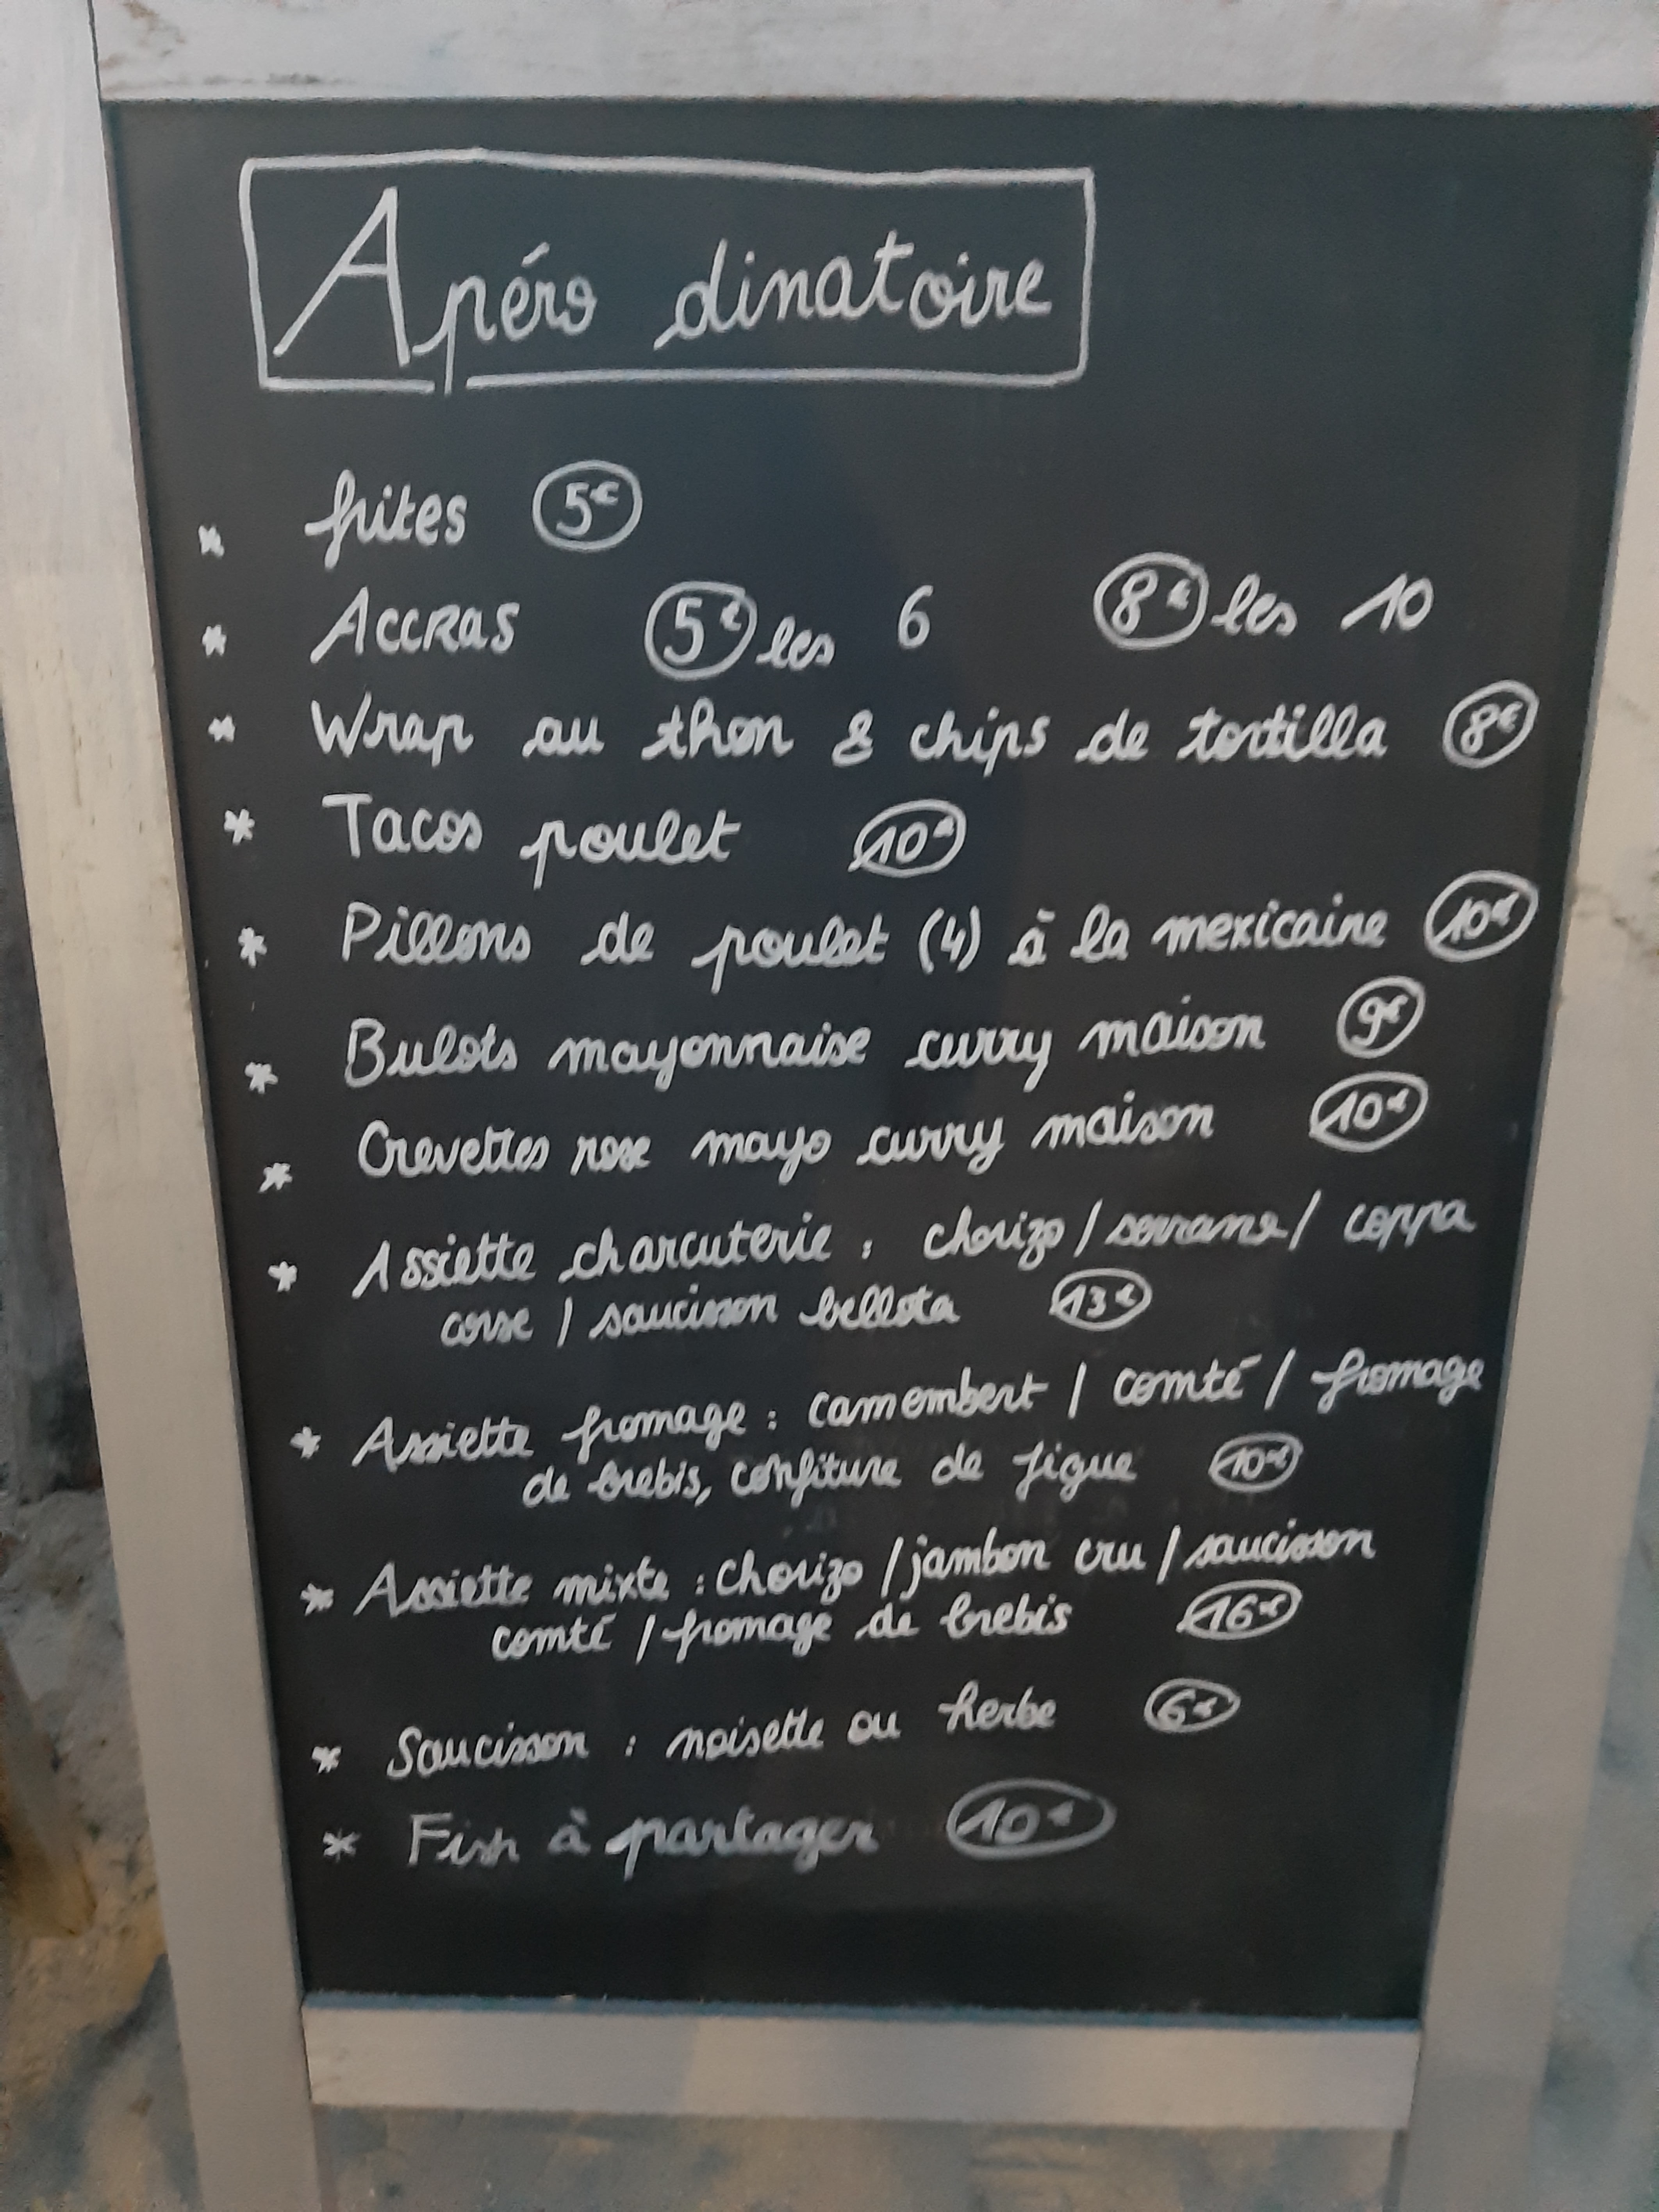 Apéro dinatoire
* frites 5€
* Accras 5€ les 6 8€ les 10
* Wrap au thon & chips de tortilla 8€
* Tacos poulet 10€
* Pillons de poulet (4) à la mexicaine 10€
* Bulots mayonnaise curry maison 9€
* Crevettes rose mayo curry maison 10€
* Assiette charcuterie : chorizo / serrano / coppa
corse / saucisson bellota 13€
* Assiette fromage : camembert / comté / fromage
de brebis, confiture de figue 10€
* Assiette mixte : chorizo / jambon cru / saucisson
comté / fromage de brebis 16€
* Saucisson : noisette ou herbe 6€
* Fish à partager 10€